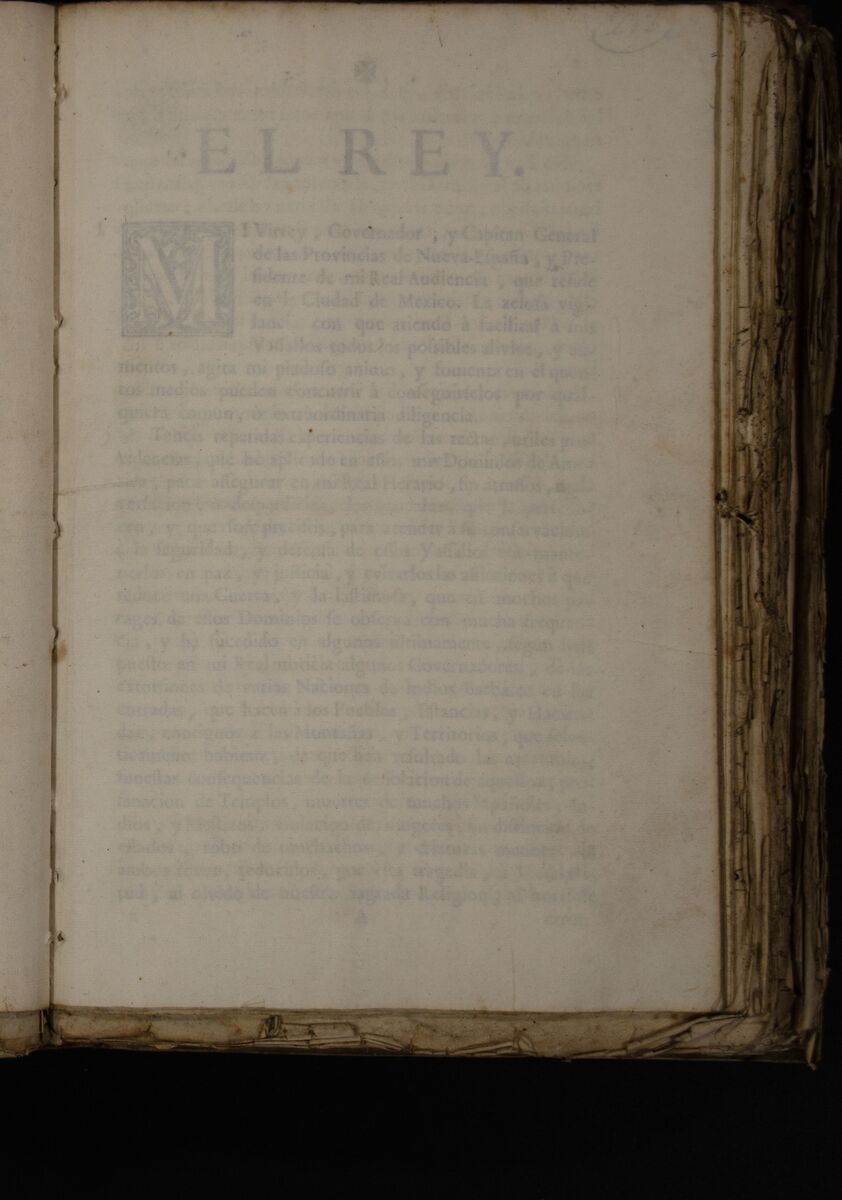 EL REY.
MI Virrey, Governador, y Capitan General
de las Provincias de Nueva-España, y Pre-
ſidente de mi Real Audiencia, que reſide
en la Ciudad de Mexico. La zeloſa vigi-
lancia con que atiendo à facilitar à mis
Vaſſallos todos los poſſibles alivios, y
mentos, agita mi piadoſo animo, y fomenta en èl quan-
tos medios pueden concurrir à conſeguirſelos por qual-
quiera comun, ù extraordinaria diligencia.
Teneis repetidas experiencias de las rectas, utiles pro-
videncias, que he aplicado en eſſos mis Dominios de Ame-
rica, para aſſegurar en mi Real Herario, ſin atraſſos,
verſacion,
cen, y que ſon preciſos, para atender à ſu conſervacion,
à la ſeguridad, y defenſa de eſſos Vaſſallos, à mante-
nerlos en paz, y juſticia, y evitarlos las aflicciones à que
reduce una Guerra, y la laſtimoſa, que en muchos pa-
rages de eſſos Dominios ſe obſerva con mucha frequen-
cia, y ha ſucedido en algunos ultimamente, ſegun han
pueſto en mi Real noticia algunos Governadores, de las
extorſiones de varias Naciones de Indios barbaros en las
entradas, que hacen à los Pueblos, Eſtancias, y Hacien-
das, contiguos à las Montañas, y Territorios, que
habitan, de que han reſultado las
funeſtas conſequencias de la deſolacion de aquellos, pro-
fanacion de Templos, muertes de muchos Eſpañoles, In-
dios, y Meſtizos, violacion de mugeres, ſin diſtincion de
eſtados, robo de muchachos, y criaturas menores de
ambos ſexos, reducidos, por eſta tragedia, à la eſclavi-
tud, al olvido de nueſtra Sagrada Religion, al
A